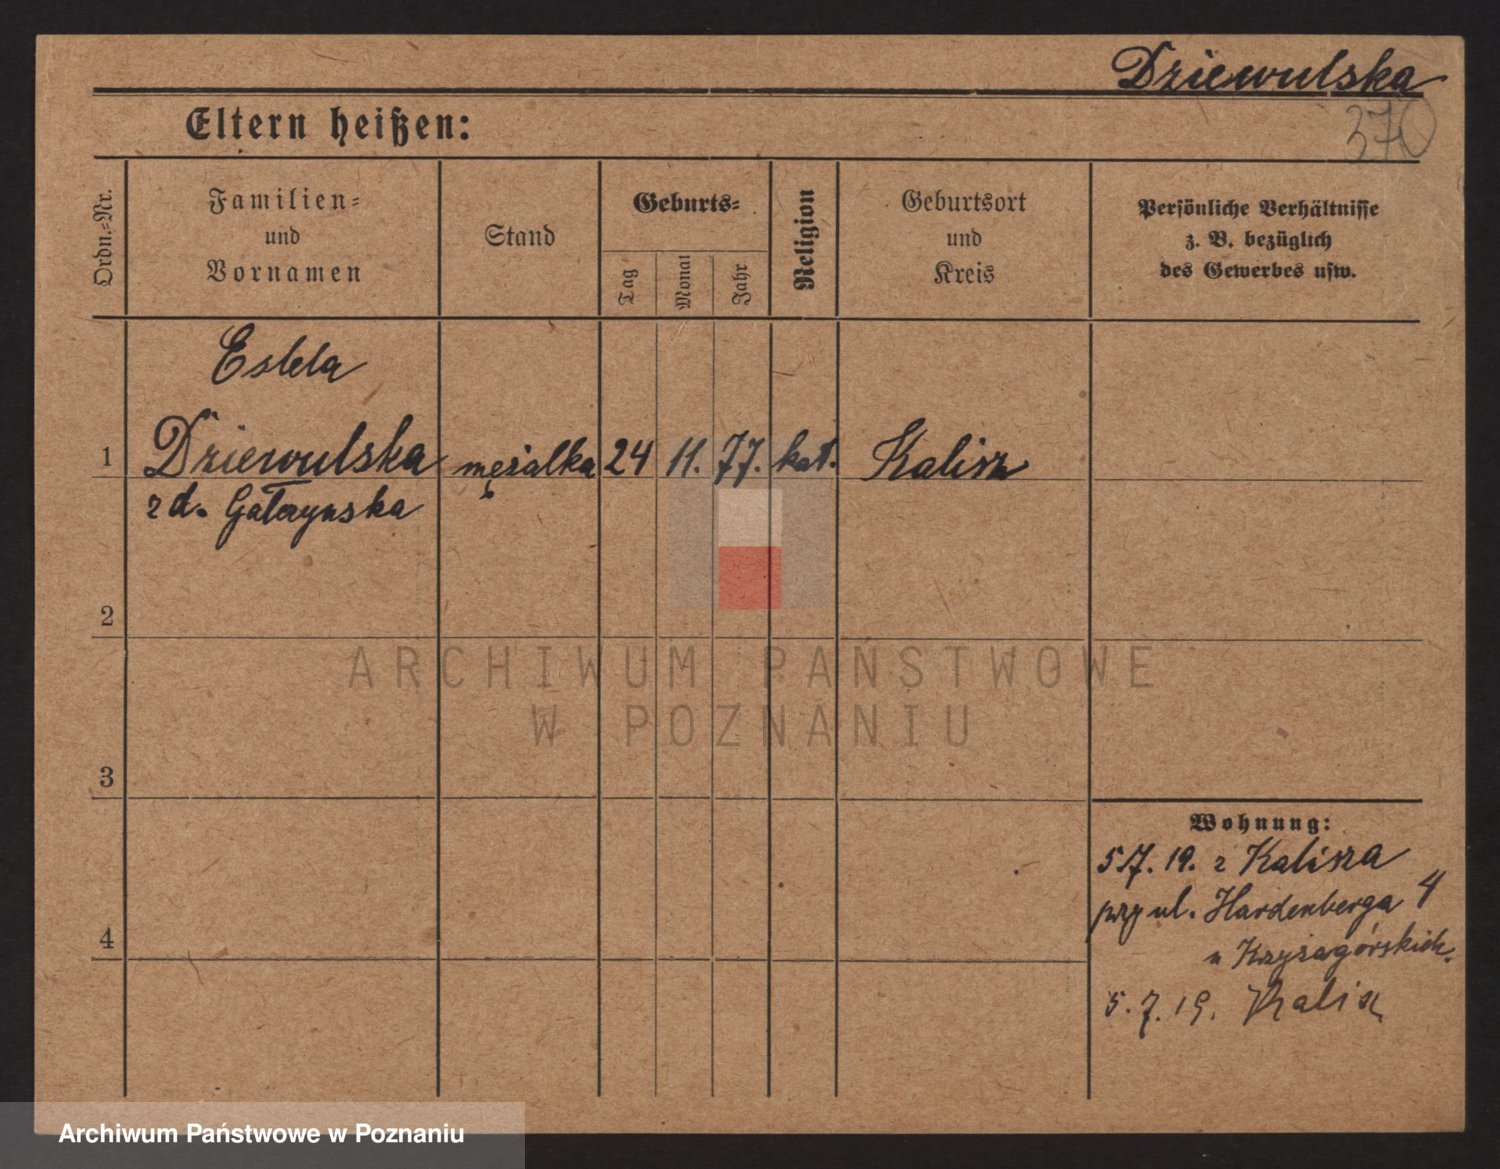 Dziewulska
370
Eltern heißen:
Ordn.-Nr.
Familien-
und
Vornamen
Stand
Geburts-
Tag
Monat
Jahr
Religion
Geburtsort
und
Kreis
Persönliche Verhältnisse
z. B. bezüglich
des Gewerbes usw.
Estela
1 Dziewulska mężatka 24 11. 77. kat. Kalisz
z d. Gałczyńska
2
ARCHIWUM PAŃSTWOWE
W POZNANIU
3
Wohnung:
5.7.19. z Kalisza
przy ul. Hardenberga 4
u Krzyżagórskich.
4
5.7.19. Kalisz
Archiwum Państwowe w Poznaniu